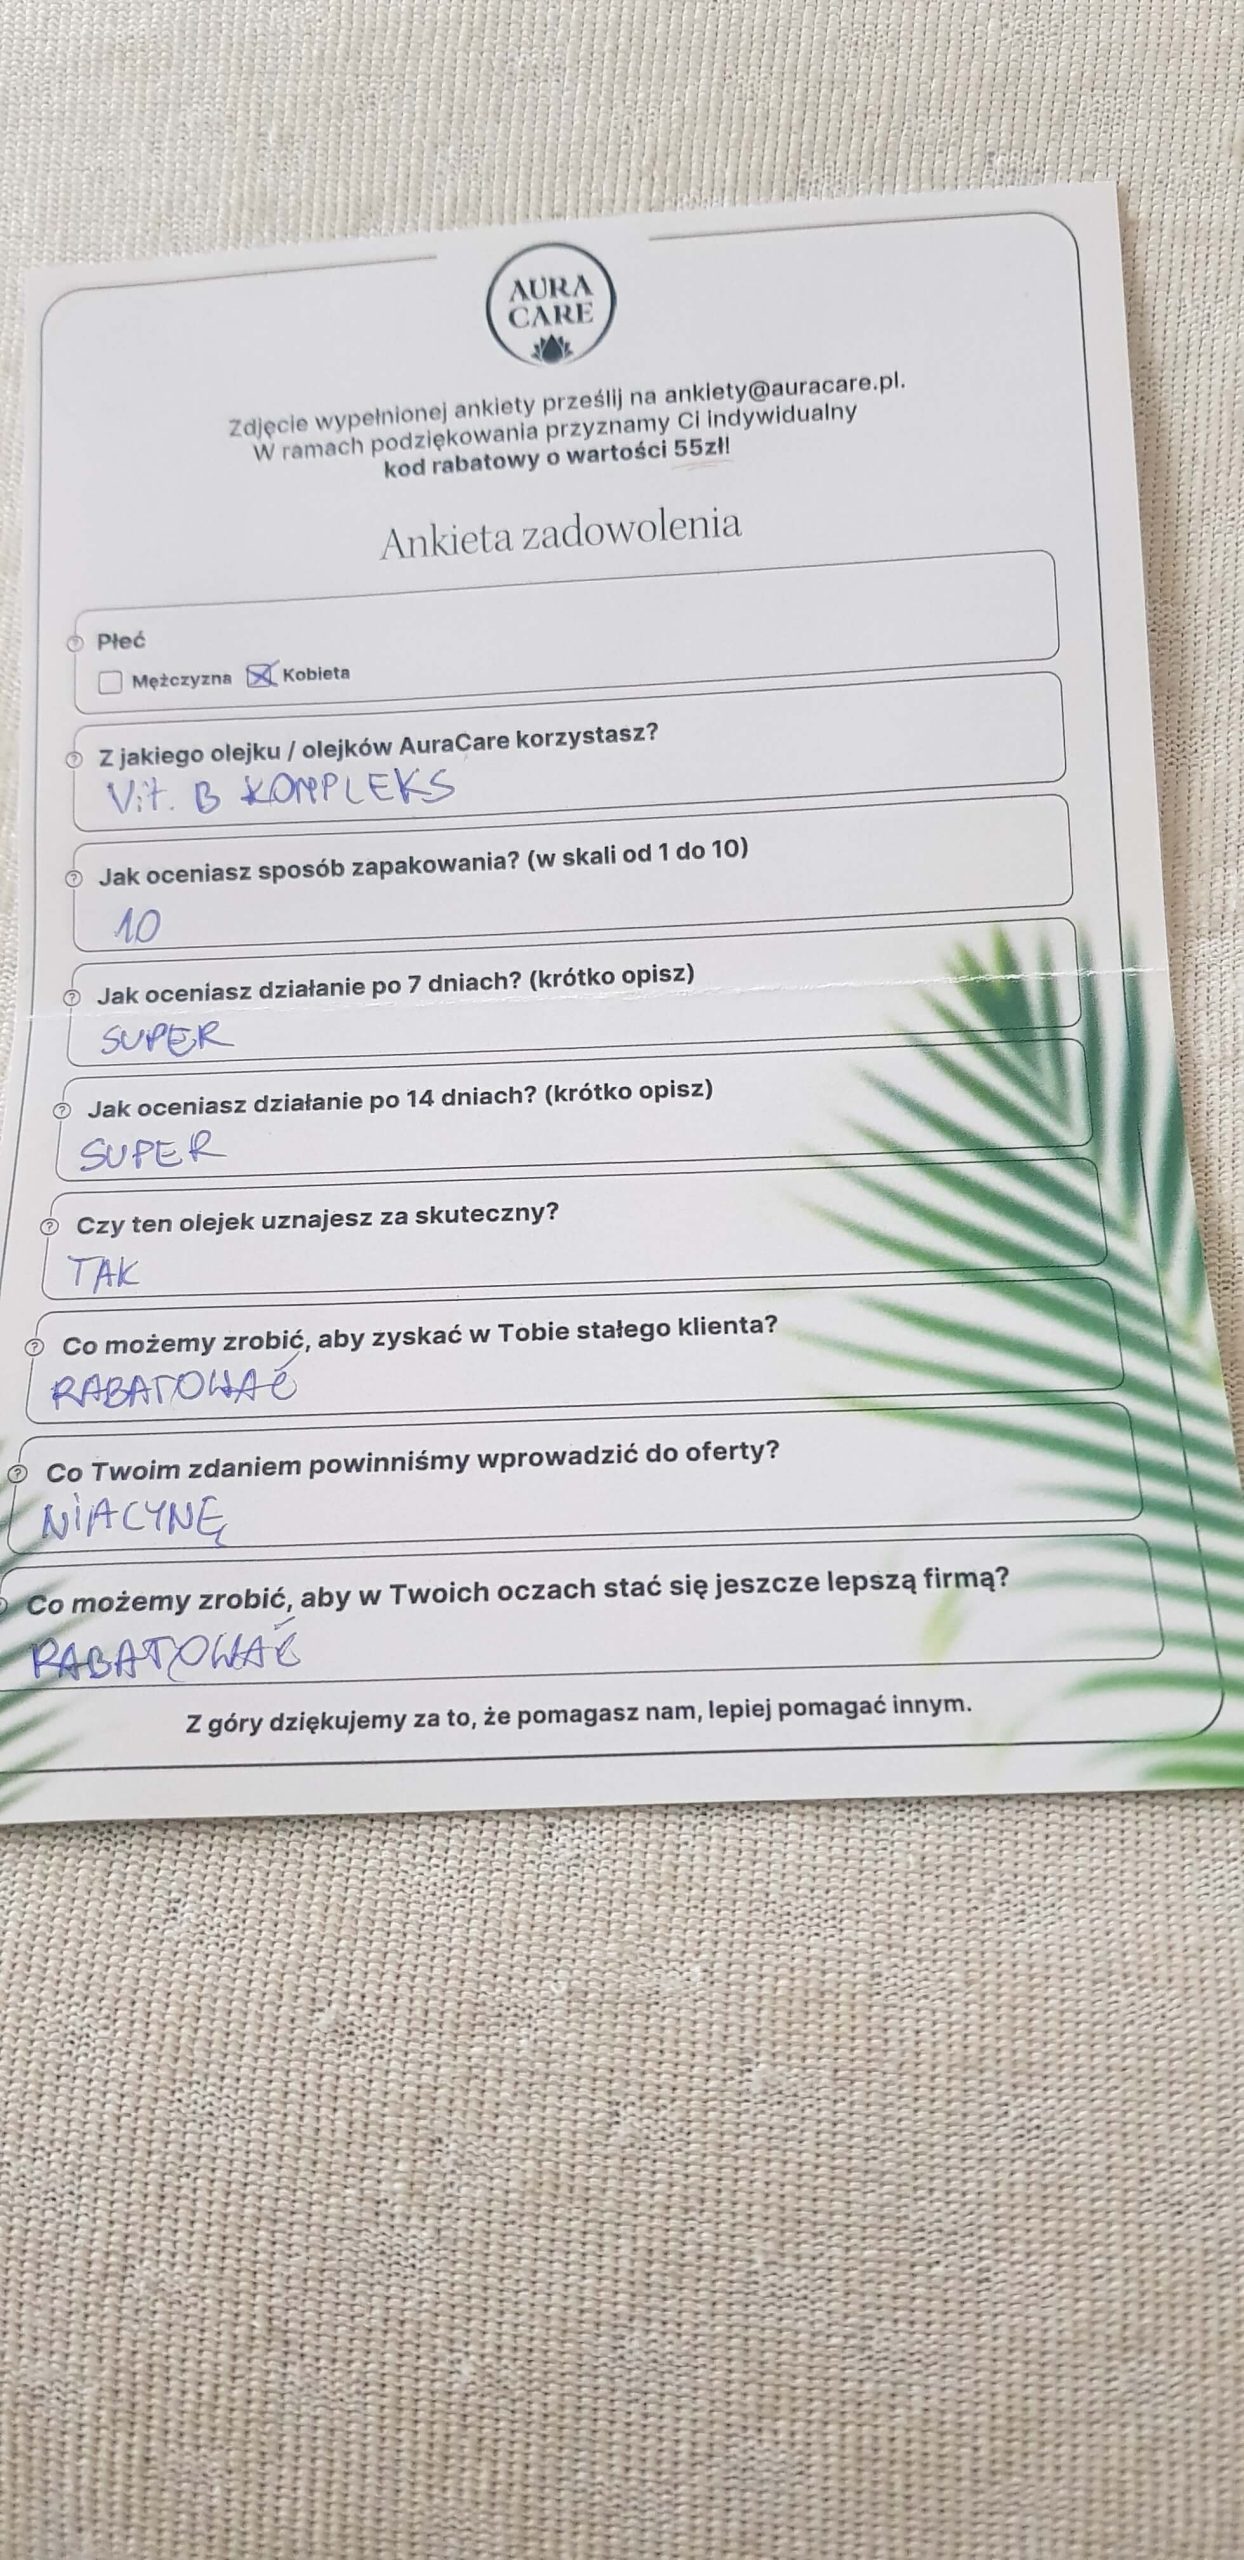 AURA
CARE
Zdjęcie wypełnionej ankiety prześlij na ankiety@auracare.pl.
W ramach podziękowania przyznamy Ci indywidualny
kod rabatowy o wartości 55zł!
Ankieta zadowolenia
? Płeć
Mężczyzna Kobieta
? Z jakiego olejku / olejków AuraCare korzystasz?
Vit. B KOMPLEKS
? Jak oceniasz sposób zapakowania? (w skali od 1 do 10)
10
? Jak oceniasz działanie po 7 dniach? (krótko opisz)
SUPER
? Jak oceniasz działanie po 14 dniach? (krótko opisz)
SUPER
? Czy ten olejek uznajesz za skuteczny?
TAK
? Co możemy zrobić, aby zyskać w Tobie stałego klienta?
RABATOWAĆ
? Co Twoim zdaniem powinniśmy wprowadzić do oferty?
NIACYNĘ
Co możemy zrobić, aby w Twoich oczach stać się jeszcze lepszą firmą?
RABATOWAĆ
Z góry dziękujemy za to, że pomagasz nam, lepiej pomagać innym.